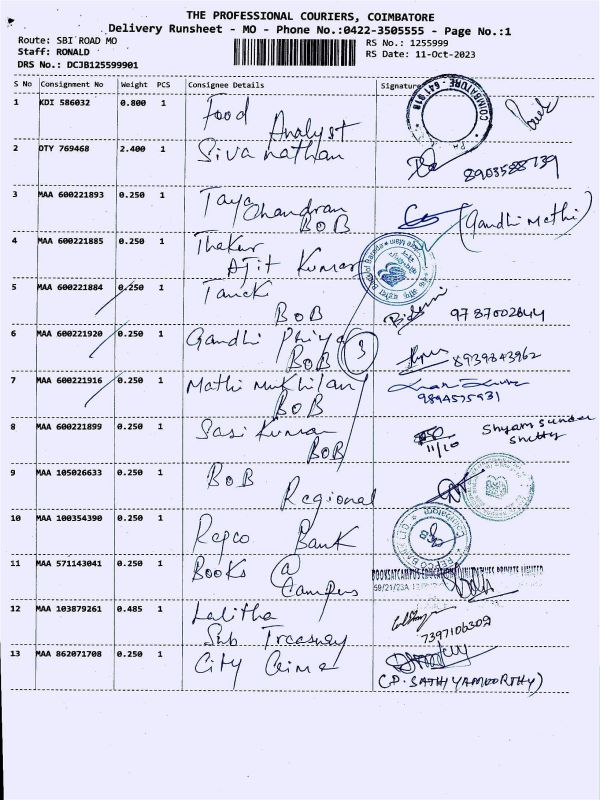 THE PROFESSIONAL COURIERS, COIMBATORE
Delivery Runsheet - MO - Phone No.:0422-3505555 - Page No.:1
Route: SBI ROAD MO
RS No.: 1255999
Staff: RONALD
RS Date: 11-Oct-2023
DRS No.: DCJB125599901
S No Consignment No Weight PCS Consignee Details Signature
COIMBATORE - 641 018
1 KDI 586032 0.800 1 Food
Analyst
2 DTY 769468 2.400 1 Siva nathan
8903588739
3 MAA 600221893 0.250 1 Taya
Chandran
BOB
(Gandhi Mathi)
4 MAA 600221885 0.250 1 Thakur
Ajit Kumar
Bank of Baroda
5 MAA 600221884 0.250 1
BOB
9787002644
6 MAA 600221920 0.250 1 Gandhi Phiya
BOB
3
8939843962
7 MAA 600221916 0.250 1 Mathi Mukhilan
BOB
9894575931
8 MAA 600221899 0.250 1 Sasi Kumar
BOB
11/10
Shyam Sunder
Shetty
9 MAA 105026633 0.250 1 BOB
Regional
10 MAA 100354390 0.250 1 Repco Bank
REPCO BANK LTD
11 MAA 571143041 0.250 1 Books @
Campus
BOOKSATCAMPUS EDUCATIONAL PRIVATE LIMITED
59/21/23A
12 MAA 103879261 0.485 1 Lalitha
Sub Treasury
7397106302
13 MAA 862071708 0.250 1 City Crime
(P. SATHIYAMOORTHY)